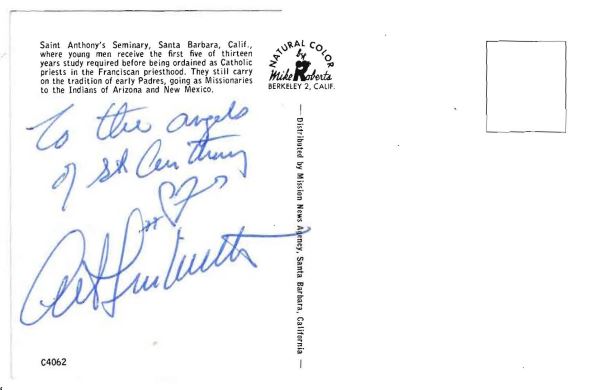 Saint Anthony's Seminary, Santa Barbara, Calif.,
where young men receive the first five of thirteen
years study required before being ordained as Catholic
priests in the Franciscan priesthood. They still carry
on the tradition of early Padres, going as Missionaries
to the Indians of Arizona and New Mexico.
NATURAL COLOR
by
Mike Roberts
BERKELEY 2, CALIF.
To the angels
of St Anthony
Art
— Distributed by Mission News Agency, Santa Barbara, California —
C4062